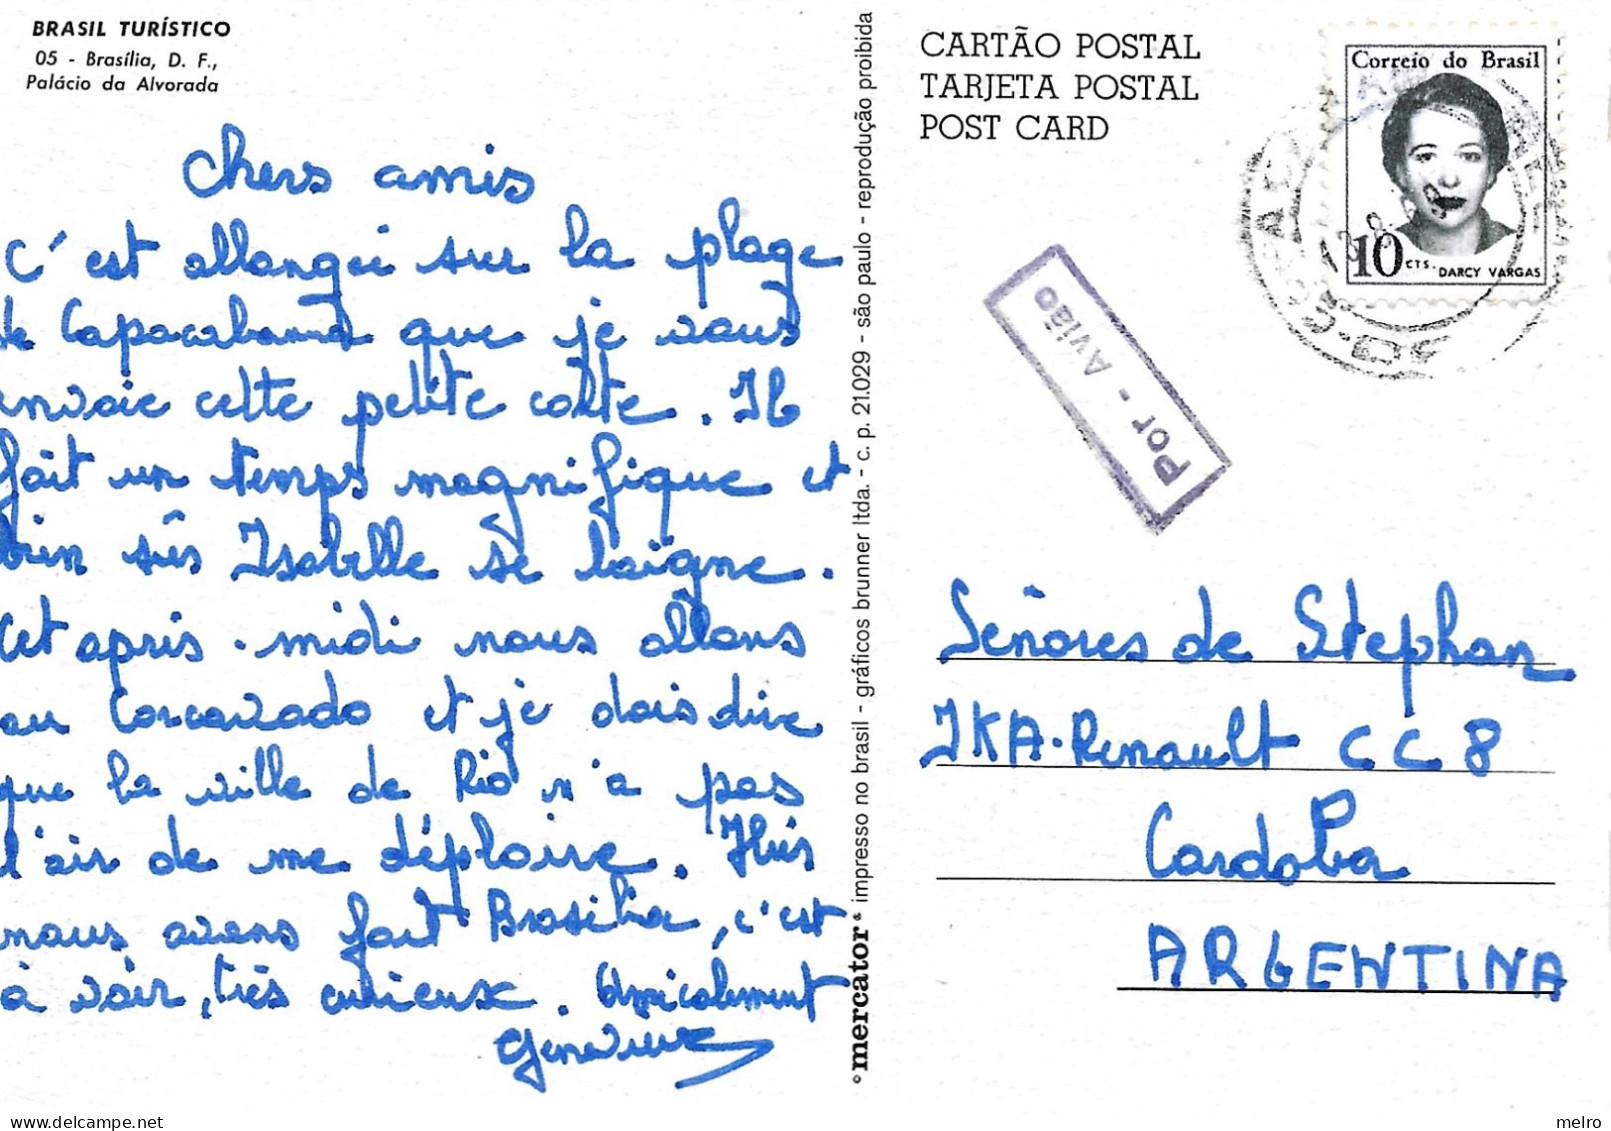 BRASIL TURÍSTICO
05 - Brasília, D. F.,
Palácio da Alvorada
Chers amis
C'est allongée sur la plage
de Capacabanna que je vous
envoie cette petite carte. Il
fait un temps magnifique et
bien sûr Isabelle se baigne.
Cet après-midi nous allons
au Corcovado et je dois dire
que la ville de Rio n'a pas
l'air de me déplaire. Puis
nous avons fait Brasilia, c'est
à voir, très curieux. Amicalement
Geneviève
°mercator° impresso no brasil - gráficos brunner ltda. - c. p. 21.029 - são paulo - reprodução proibida
CARTÃO POSTAL
TARJETA POSTAL
POST CARD
Correio do Brasil
10 CTS. DARCY VARGAS
Por - Avião
Señores de Stephan
IKA-Renault CC 8
Cordoba
ARGENTINA
delcampe.net
melro